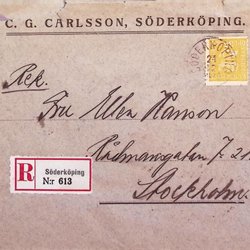 C. G. CARLSSON, SÖDERKÖPING.
SÖDERKÖPING
Rek.
Fru Ellen Hanson
Rådmansgatan 7
Stockholm.
R
Söderköping
N:r 613